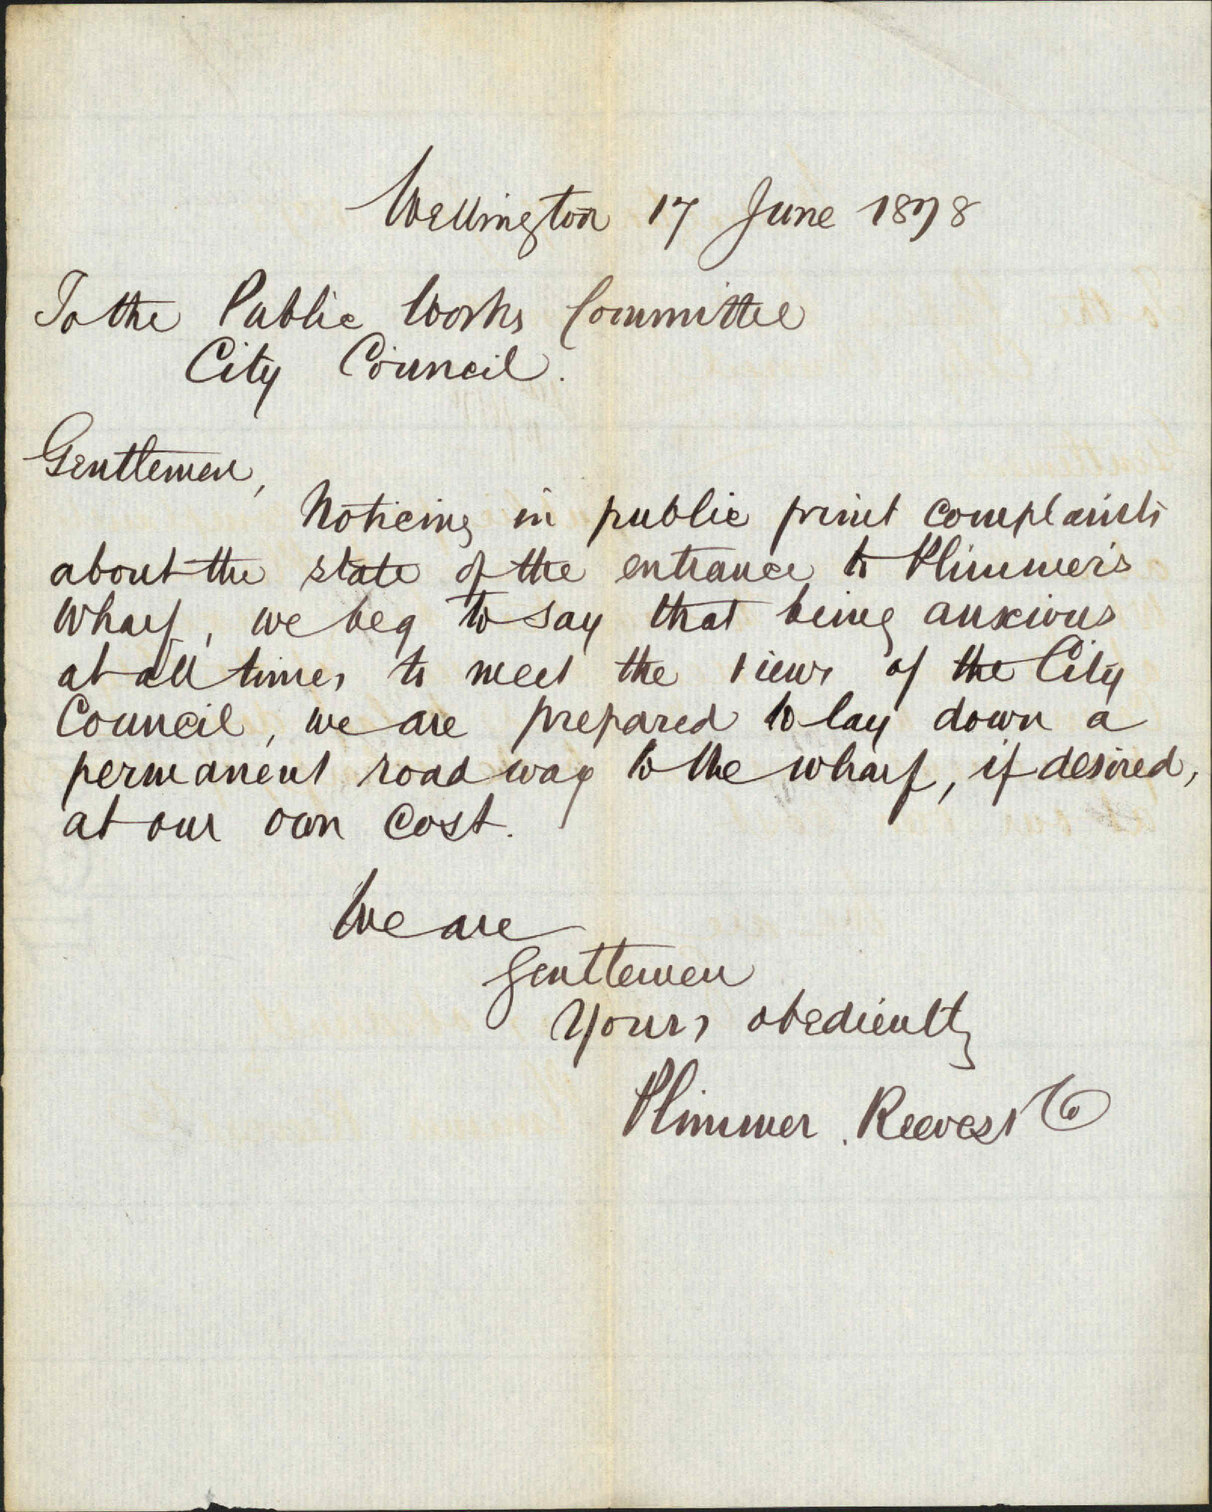 Wellington 17 June 1878
To the Public Works Committee
City Council.
Gentlemen,
Noticing in public print complaints
about the state of the entrance to Plimmer's
Wharf, we beg to say that being anxious
at all times to meet the views of the City
Council, we are prepared to lay down a
permanent roadway to the wharf, if desired,
at our own cost.
We are
Gentlemen
Yours obediently
Plimmer, Reeves & Co